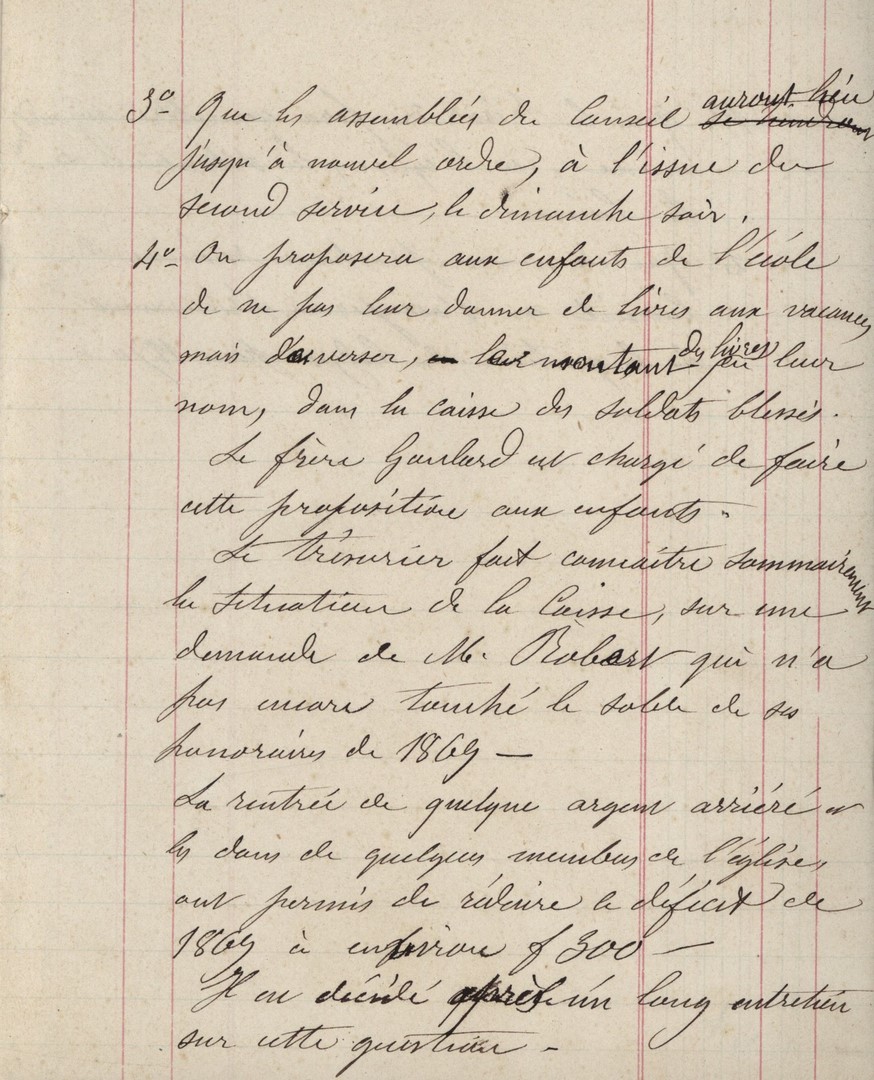 3º Que les assemblées du Conseil auront lieu se tiendront
jusqu'à nouvel ordre, à l'issue du
second service, le dimanche soir.
4º On proposera aux enfants de l'école
de ne pas leur donner de livres aux vacances
mais d'en verser, le montant des livres en leur
nom, dans la caisse des soldats blessés.
Le frère Goulard est chargé de faire
cette proposition aux enfants.
Le trésorier fait connaître sommairement
la situation de la Caisse, sur une
demande de Mr. Robert qui n'a
pas encore touché le solde de ses
honoraires de 1869 —
La rentrée de quelque argent arriéré et
les dons de quelques membres de l'église,
ont permis de réduire le déficit de
1869 à environ f 300 —
Il est décidé après un long entretien
sur cette question —